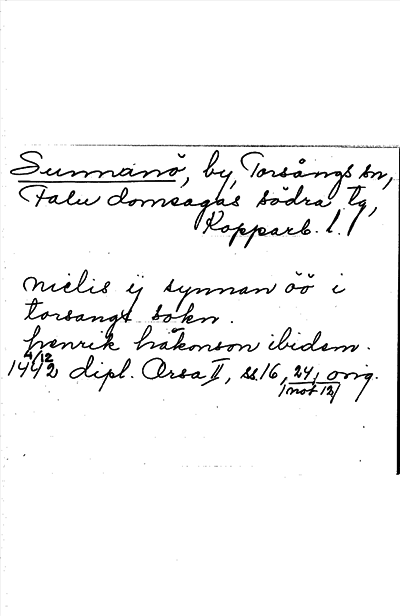 Sunnanö, by, Torsångs sn,
Falu domsagas södra tg,
Kopparb. l.
nielis ij synnan öö i
torsangx sokn.
henrik håkonson ibidem.
4/12
1442 dipl. Orsa II, ss. 16, 24, orig.
(not 12)